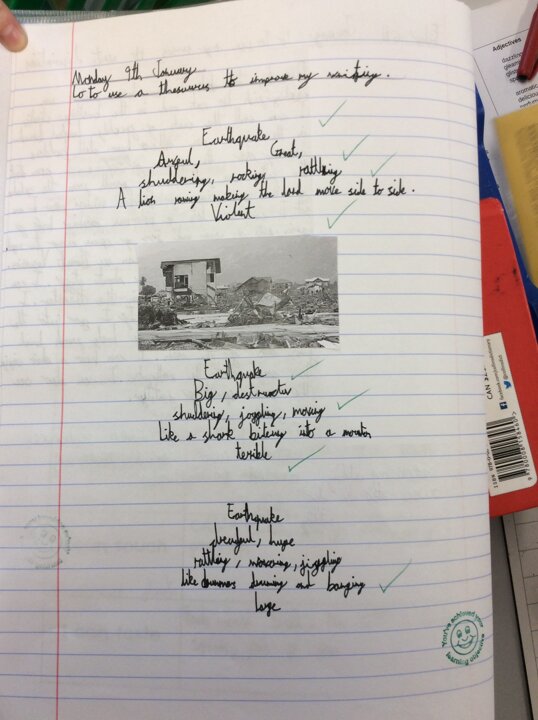 Monday 9th January
Lo to use a thesaurus to improve my writing.
Earthquake
Great,
shuddering, rocking, rattling
A lion roaring making the land move side to side.
Violent
Earthquake
Big,
shuddering, joggling, moving
like a shark biteing into a
terrible
Earthquake
dreadful, huge
rattling, moving, jiggling
like drumming and banging
large
You've achieved your learning objective
Adjectives